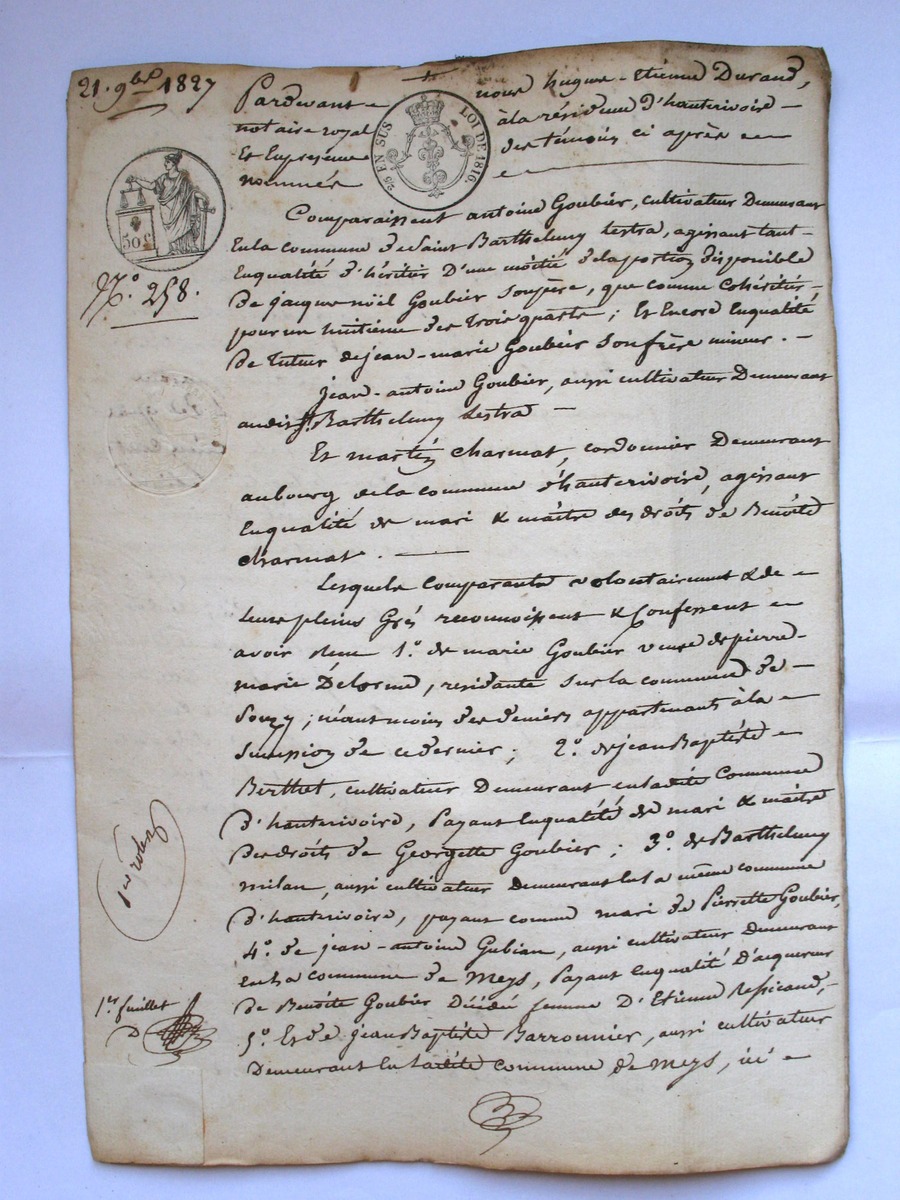 21. 9bre 1827
Pardevant nous hugues-Etienne Durand,
notaire royal à la résidence d'hauterivoire
Et En présence des témoins ci après
nommés
25 EN SUS LOI DE 1816.
50 c
N.° 258.
Comparaissent antoine Goubier, cultivateur Demeurant
En la commune de Saint Barthelemy Lestra, agissant tant
En qualité d'héritier D'une moitié de la portion disponible
De jacques noël Goubier Son père, que comme Cohéritier
pour un huitième des trois quarts; Et Encore En qualité
De tuteur de jean-marie Goubier Son frère mineur.
Jean-antoine Goubier, aussi cultivateur Demeurant
audit St. Barthelemy Lestra
Et martin charmat, cordonnier Demeurant
au bourg de la commune d'hauterivoire, agissant
En qualité de mari & maître des droits de Benoîte
charmat.
Lesquels Comparants volontairement & de
Leurs pleins Grés reconnoissent & Confessent
avoir reçu 1.° de marie Goubier veuve de pierre-
marie Delorme, résidante Sur la commune de
Souzy; néanmoins des deniers appartenants à la
de ce dernier; 2.° de jean Baptiste
Berthet, cultivateur Demeurant en ladite Commune
d'hauterivoire, Payant En qualité de mari & maître
Des droits de Georgette Goubier; 3.° de Barthelemy
milan, aussi cultivateur demeurant en la même commune
d'hauterivoire, payant comme mari de Pierrette Goubier,
4.° de jean-antoine Gubian, aussi cultivateur Demeurant
En la commune de Meys, Payant En qualité D'acquereur
de Benoîte Goubier Décédé femme D'Etienne
5.° Et de Jean Baptiste Barronnier, aussi cultivateur
Demeurant En Ladite commune de Meys, ici
1er rôle
1er feuillet
D